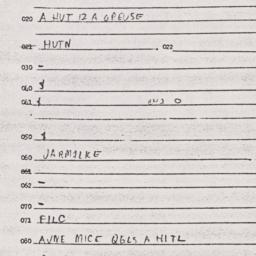 020 A HUT IZ A OPEUSE
021 HUTN . 022
030 –
040 $
041 $
050 $
060 JARMILKE
061
062 –
070 –
071 FILC
080 AVNE MICE QGLS A HITL